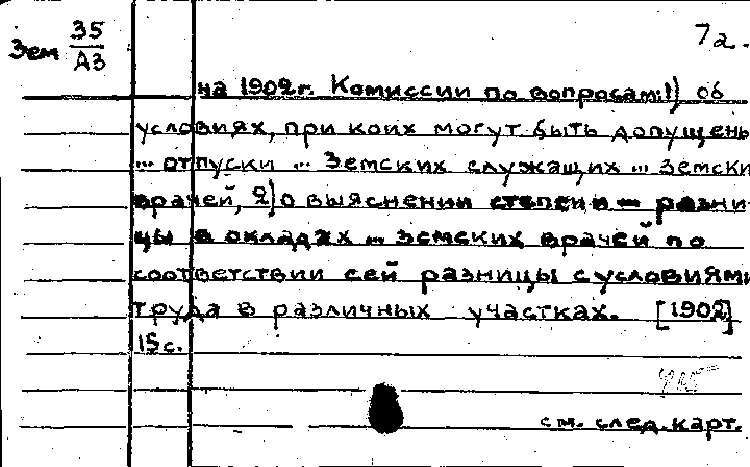 7а.
Зем 35
А3
на 1902 г. Комиссии по вопросам: 1) об
условиях, при коих могут быть допущены
... отпуски ... Земских служащих ... земски
врачей, 2) о выяснении степени ... разни-
цы в окладах ... земских врачей по
соответствии сей разницы с условиями
труда в различных участках. [1902]
15 с.
см. след. карт.